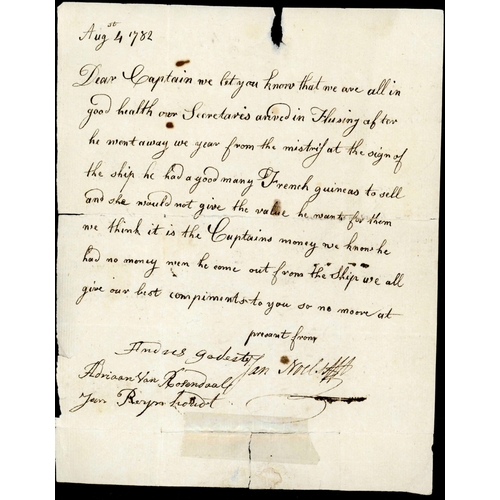 Augst 4 1782
Dear Captain we let you know that we are all in
good health our Secretaris arived in Flusing after
he wont away we year from the mistris at the sign of
the ship he had a good many French guineas to sell
and she would not give the value he wants for them
we think it is the Captains money we know he
had no money wen he come out from the Ship we all
give our best compiments to you so no moore at
present from
Andres Jan Noel
Adriaan Van Rosendaal
Jan Reyn